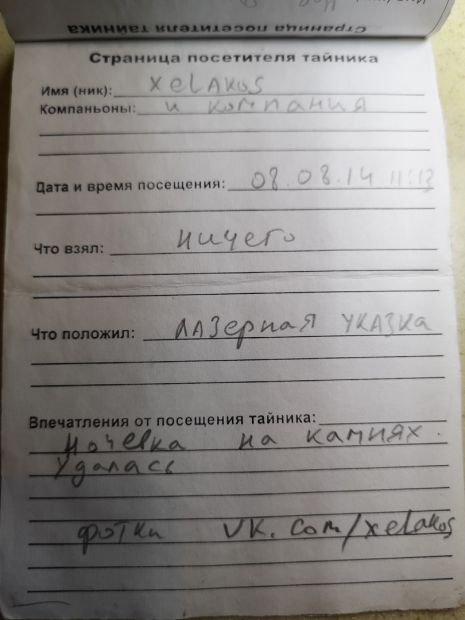 Страница посетителя тайника
Страница посетителя тайника
Имя (ник): xelakos
Компаньоны: и компания
Дата и время посещения: 08.08.14 11:13
Что взял: ничего
Что положил: лазерная указка
Впечатления от посещения тайника:
Ночевка на камнях.
Удалась
фотки vk.com/xelakos